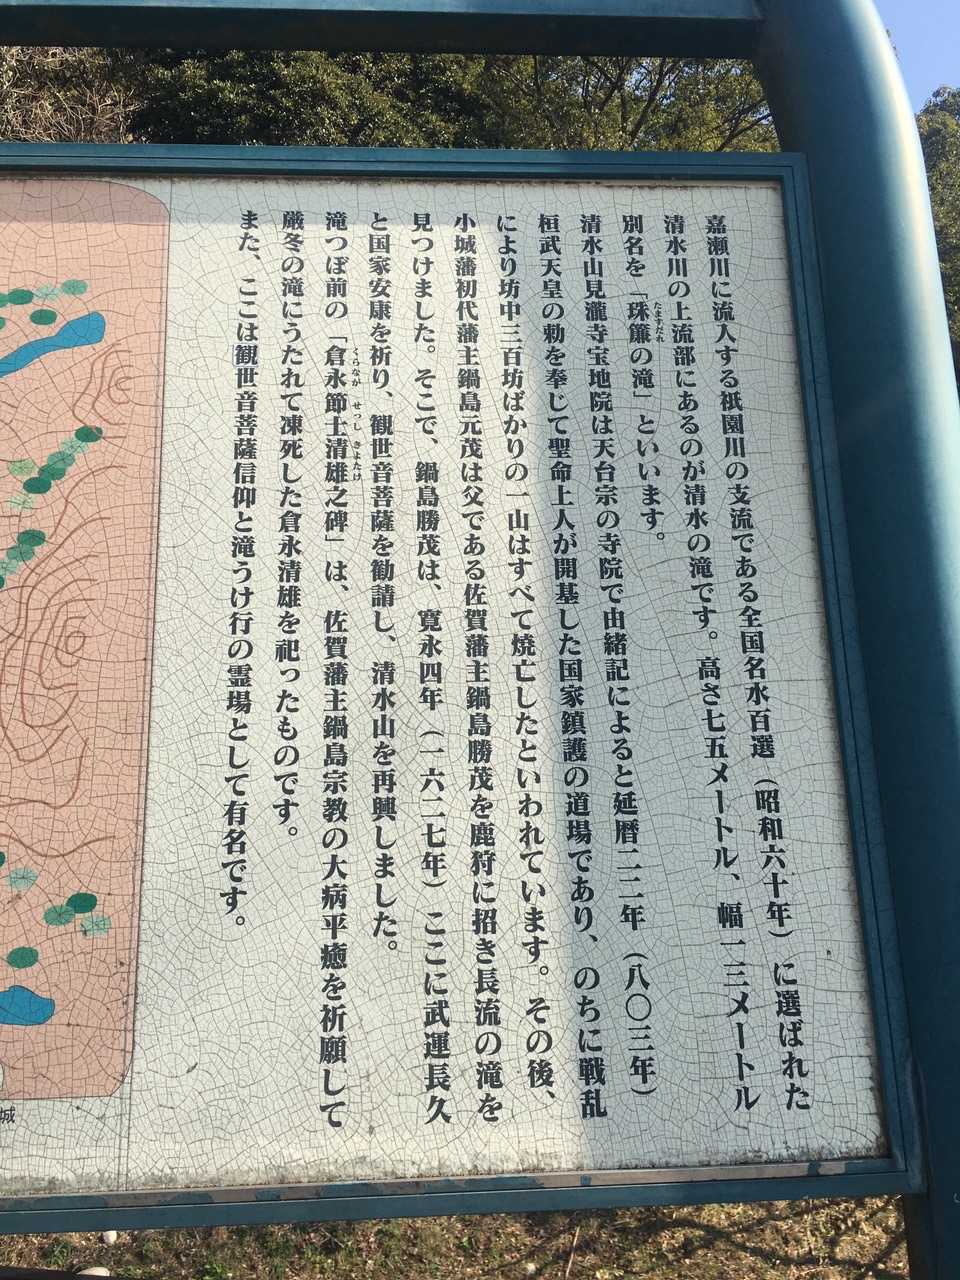 嘉瀬川に流入する祇園川の支流である全国名水百選（昭和六十年）に選ばれた
清水川の上流部にあるのが清水の滝です。高さ七五メートル、幅一三メートル
別名を「珠簾の滝」といいます。
たますだれ
清水山見瀧寺宝地院は天台宗の寺院で由緒記によると延暦二二年（八〇三年）
桓武天皇の勅を奉じて聖命上人が開基した国家鎮護の道場であり、のちに戦乱
により坊中三百坊ばかりの一山はすべて焼亡したといわれています。その後、
小城藩初代藩主鍋島元茂は父である佐賀藩主鍋島勝茂を鹿狩に招き長流の滝を
見つけました。そこで、鍋島勝茂は、寛永四年（一六二七年）ここに武運長久
と国家安康を祈り、観世音菩薩を勧請し、清水山を再興しました。
滝つぼ前の「倉永節士清雄之碑」は、佐賀藩主鍋島宗教の大病平癒を祈願して
くらなが せっし きよたけ
厳冬の滝にうたれて凍死した倉永清雄を祀ったものです。
また、ここは観世音菩薩信仰と滝うけ行の霊場として有名です。
城